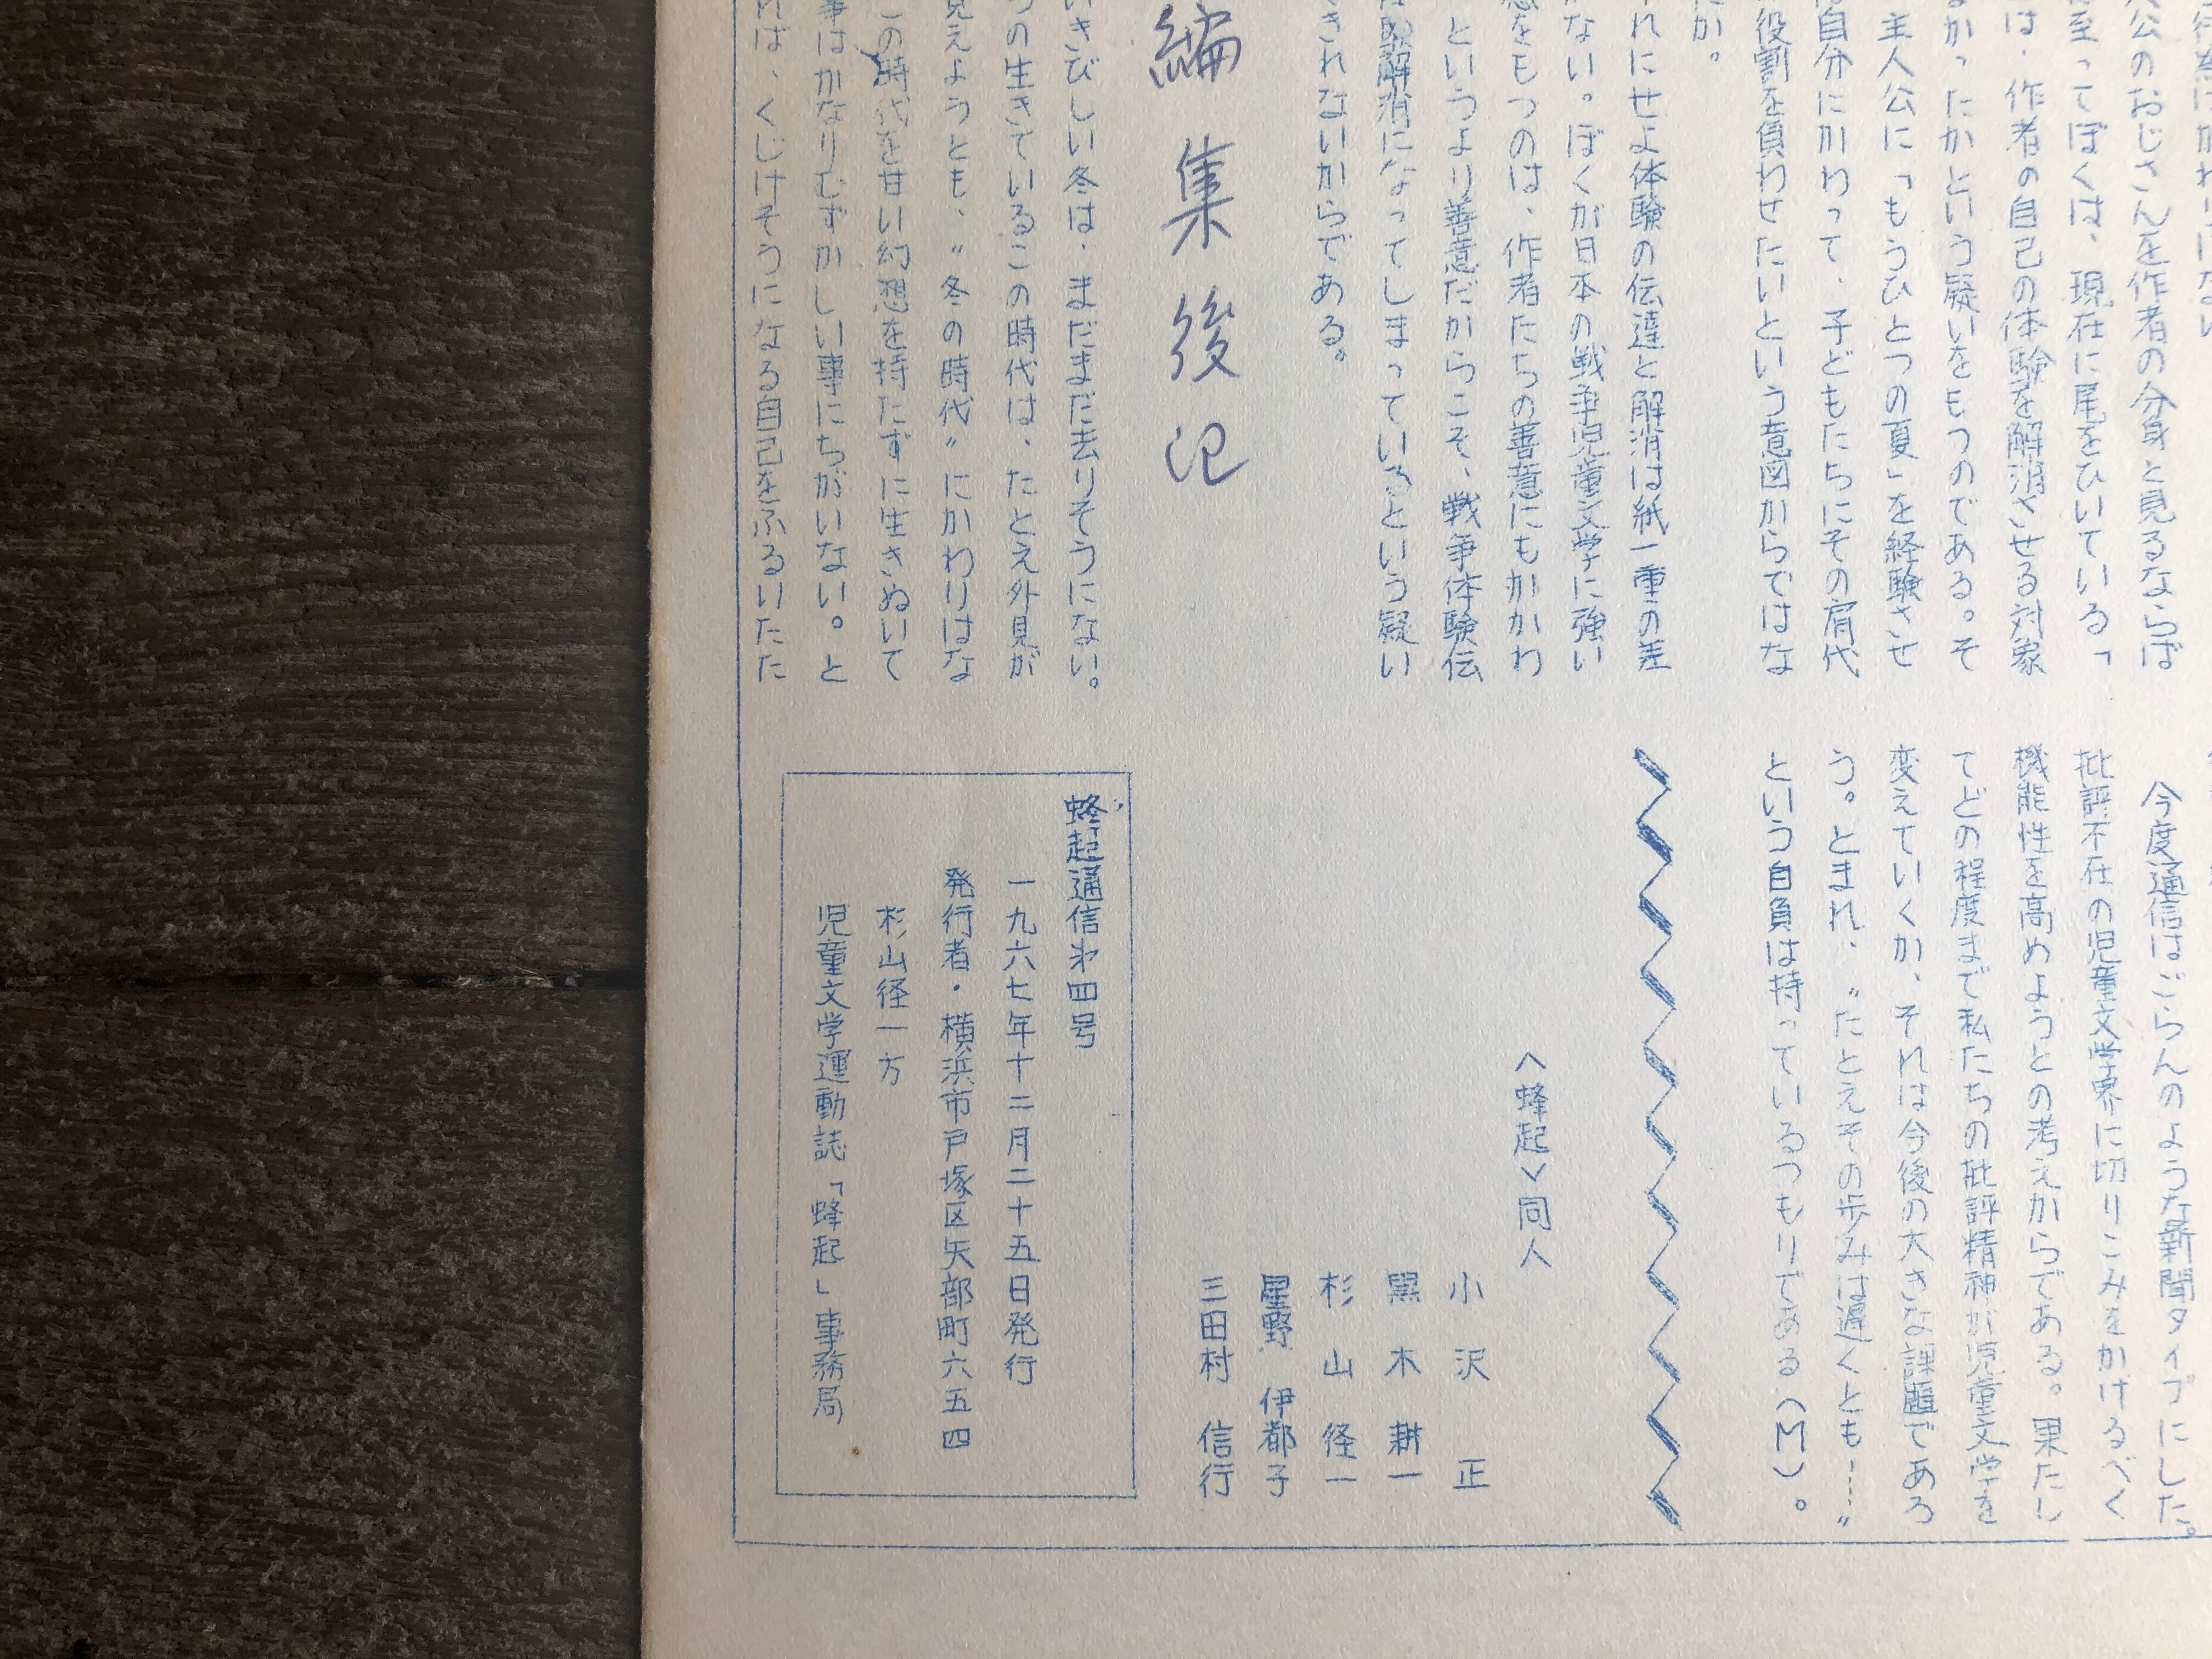 公のおじさんを作者の分身と見るならば
至ってぼくは、現在に尾をひいている「
は、作者の自己の体験を解消させる対象
かったかという疑いをもつのである。そ
主人公に「もうひとつの夏」を経験させ
自分にかわって、子どもたちにその肩代
役割を負わせたいという意図からではな
か。
れにせよ体験の伝達と解消は紙一重の差
ない。ぼくが日本の戦争児童文学に強い
をもつのは、作者たちの善意にもかかわ
というより善意だからこそ、戦争体験伝
解消になってしまっているという疑い
きれないからである。
編集後記
いきびしい冬は、まだまだ去りそうにない。
の生きているこの時代は、たとえ外見が
見えようとも、〝冬の時代〟にかわりはな
この時代を甘い幻想を持たずに生きぬいて
事はかなりむずかしい事にちがいない。と
れば、くじけそうになる自己をふるいたた
今度通信はごらんのような新聞タイプにした。
批評不在の児童文学界に切りこみをかけるべく
機能性を高めようとの考えからである。果たし
てどの程度まで私たちの批評精神が児童文学を
変えていくか、それは今後の大きな課題であろ
う。とまれ、〝たとえその歩みは遅くとも……〟
という自負は持っているつもりである(M)。
〈蜂起〉同人
小沢 正
黒木 耕一
杉山 径一
星野 伊都子
三田村 信行
蜂起通信㐧四号
一九六七年十二月二十五日発行
発行者・横浜市戸塚区矢部町六五四
杉山径一方
児童文学運動誌「蜂起」事務局